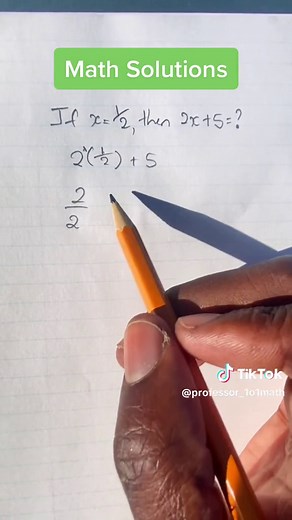 Math Solutions
If x=1/2, then 2x+5=?
2×(1/2) + 5
2/2
TikTok
@professor_1o1math